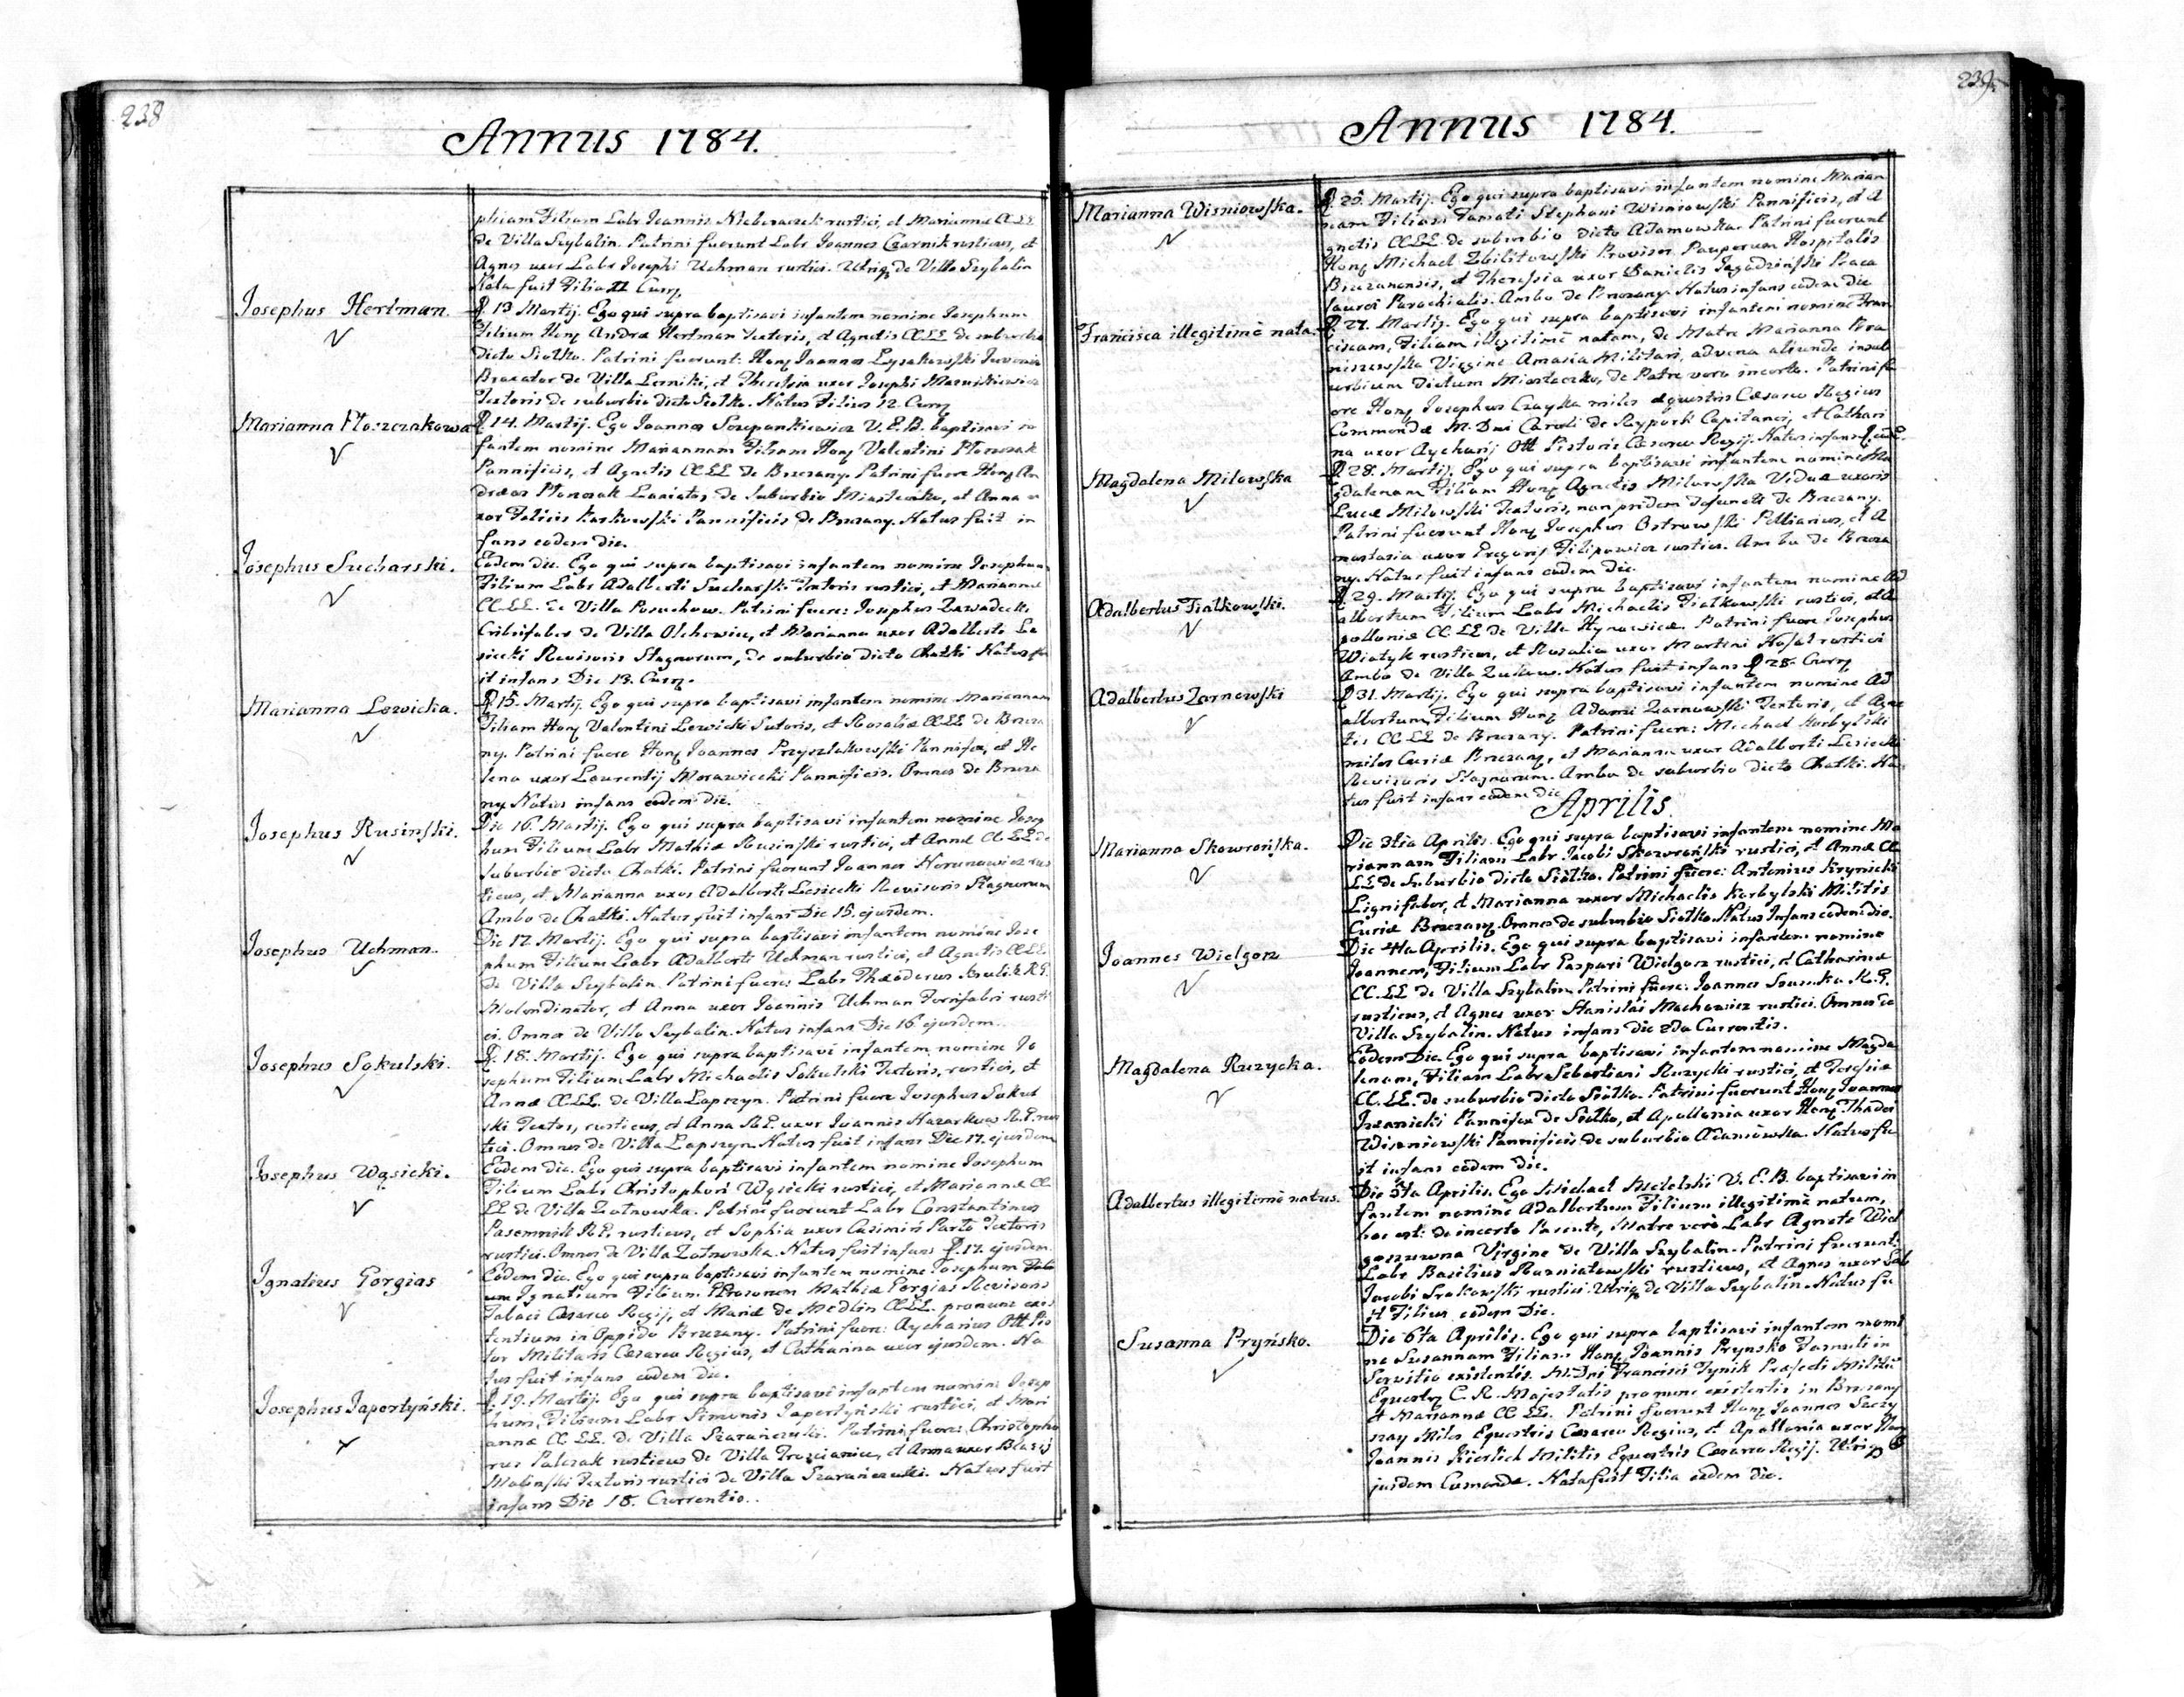 238
Annus 1784.
phiam Filiam Labr Joannis Nieboraczek rustici, et Mariannæ CC.LL.
de Villa Szybalin. Patrini fuerunt Labr Joannes Czarnik rusticus, et
Agnes uxor Labr Josephi Uchman rustici. Utriq de Villa Szybalin
Nata fuit Filia 11 Curr
Josephus Hertman.
D. 13 Martij. Ego qui supra baptisavi infantem nomine Josephum
Filium Hon Andreæ Hertman Textoris, et Agnetis CC.LL. de suburbio
dicto Siolko. Patrini fuerunt: Hon Joannes Lysakowski Juvenis
Braxator de Villa Lesniki, et Theressia uxor Josephi
Textoris de suburbio dicto Siolko. Natus Filius 12. Curr
Marianna Ploszczakowa
D. 14. Martij. Ego Joannes Szczepankiewicz V.E.B. baptisavi in
fantem nomine Mariannam Filiam Hon Valentini
Pannificis, et Agnetis CC.LL. de Brzezany. Patrini fuere Hon An
dreas de Suburbio Miasteczko, et Anna u
xor Felicis Karkowski Pannificis de Brzezany. Natus fuit in
fans eodem die.
Josephus Sucharski.
Eodem die. Ego qui supra baptisavi infantem nomine Josephum
Filium Labr Adalberti Sucharski Textoris rustici, et Mariannæ
CC.LL. de Villa Posuchow. Patrini fuere: Josephus Zawadecki
Cribrifaber de Villa Olchowiec, et Marianna uxor Adalberti Le
siecki Revisoris Stagnorum, de suburbio dicto Chatki Natus fu
it infans Die 13. Curr.
Marianna Lewicka.
D. 15. Martij. Ego qui supra baptisavi infantem nomine Mariannam
Filiam Hon Valentini Lewicki Sutoris, et Rosaliæ CC.LL. de Brzeza
ny. Patrini fuere Hon Joannes Przyszlakowski Pannifex, et He
lena uxor Laurentij Morawiecki Pannificis. Omnes de Brzeza
ny Natus infans eodem die.
Josephus Rusinski.
Die 16. Martij. Ego qui supra baptisavi infantem nomine Josep
hum Filium Labr Mathiæ Rusinski rustici, et Annæ CC.LL. de
Suburbio dicto Chatki. Patrini fuerunt Joannes Horunowicz rus
ticus, et Marianna uxor Adalberti Lesiecki Revisoris Stagnorum
Ambo de Chatki. Natus fuit infans Die 15. ejusdem.
Josephus Uchman.
Die 17. Martij. Ego qui supra baptisavi infantem nomine Jose
phum Filium Labr Adalberti Uchman rustici, et Agnetis CC.LL.
de Villa Szybalin. Patrini fuere: Labr Theodorus Krulik R.G.
Molendinator, et Anna uxor Joannis Uchman Fornifabri rusti
ci. Omnes de Villa Szybalin. Natus infans Die 16 ejusdem.
Josephus Sokulski.
D. 18. Martij. Ego qui supra baptisavi infantem nomine Jo
sephum Filium Labr Michaelis Sokulski Textoris, rustici, et
Annæ CC.LL. de Villa Lapszyn. Patrini fuere Josephus Sokul
ski Textor, rusticus, et Anna R.G. uxor Joannis R.G. rus
tici. Omnes de Villa Lapszyn. Natus fuit infans Die 17. ejusdem
Josephus Wąsicki.
Eodem die. Ego qui supra baptisavi infantem nomine Josephum
Filium Labr Christophori Wąsicki rustici, et Mariannæ CC.
LL. de Villa Zotnowka. Patrini fuerunt Labr Constantinus
Pasemnik R.G. rusticus, et Sophia uxor Casimiri Parto Textoris
rustici. Omnes de Villa Zotnowka. Natus fuit infans D. 17. ejusdem.
Ignatius Gorgias
Eodem die. Ego qui supra baptisavi infantem nomine Josephum
um Ignatium Filium Mathiæ Gorgias Revisoris
Tabaci Cæsareo Regij, et Mariæ de Medlin CC.LL. pronunc exis
tentium in Oppido Brzezany. Patrini fuere: Aycharius Ott Pis
tor Militaris Cæsareo Regius, et Catharina uxor ejusdem. Na
tus fuit infans eodem die.
Josephus Japortyński.
D. 19. Martij. Ego qui supra baptisavi infantem nomine Josep
hum, Filium Labr Simonis Japortyński rustici, et Mari
annæ CC.LL. de Villa Szaranczuki. Patrini fuere: Christopho
rus Palczak rusticus de Villa Troscianiec, et Anna uxor Blasij
Malinski Textoris rustici de Villa Szaranczuki. Natus fuit
infans Die 18. Currentis.
239
Annus 1784.
Marianna Wisniowska.
D. 25. Martij. Ego qui supra baptisavi infantem nomine Marian
nam Filiam Famati Stephani Wisniowski Pannificis, et A
gnetis CC.LL. de suburbio dicto Adamowka. Patrini fuerunt
Hon Michael Zbilitowski Provisor Pauperum Hospitalis
Brzezanensis, et Theressia uxor Danielis Jagodzinski Braca
laurei Parochialis. Ambo de Brzezany. Natus infans eodem die
Francisca illegitimè nata.
D. 27. Martij. Ego qui supra baptisavi infantem nomine Fran
ciscam, Filiam illegitimè natam, de Matre Marianna Bra
niszewska Virgine Amasia Militari, advena aliunde in sub
urbium dictum Miasteczko, de Patre vero incerto. Patrini fu
ere Hon Josephus Czayka miles equestris Cæsareo Regius
Commendæ M. Dni Caroli de Reypork Capitanei, et Cathari
na uxor Aycharij Ott Pistoris Cæsareo Regij. Natus infans
Magdalena Milowska
D. 28. Martij. Ego qui supra baptisavi infantem nomine Ma
gdalenam Filiam Hon Agnetis Milowska Viduæ uxoris
Lucæ Milowski Textoris, non pridem defuncti de Brzezany.
Patrini fuerunt Hon Josephus Ostrowski Pelliarius, et A
nastasia uxor Gregorij Filipowicz rustici. Ambo de Brzeza
ny. Natus fuit infans eodem die.
Adalbertus Fialkowski.
D. 29. Martij. Ego qui supra baptisavi infantem nomine Ad
albertum Filium Labr Michaelis Fialkowski rustici, et A
polloniæ CC.LL. de Villa Hynowice. Patrini fuere Josephus
Wiatyk rusticus, et Rosalia uxor Martini Kosal rustici
Ambo de Villa Zukow. Natus fuit infans D. 28. Curr
Adalbertus Zarnowski
D. 31. Martij. Ego qui supra baptisavi infantem nomine Ad
albertum, Filium Hon Adami Zarnowski Textoris, et Agne
tis CC.LL. de Brzezany. Patrini fuere: Michael Korbylski
miles Curiæ Brzezany, et Marianna uxor Adalberti Lesiecki
Revisoris Stagnorum. Ambo de suburbio dicto Chatki. Na
tus fuit infans eodem die
Aprilis.
Marianna Skowrońska.
Die 3tia Aprilis. Ego qui supra baptisavi infantem nomine Ma
riannam Filiam Labr Jacobi Skowroński rustici, et Annæ CC.
LL. de Suburbio dicto Siolko. Patrini fuere: Antonius Krynicki
Lignifaber, et Marianna uxor Michaelis Korbylski Militis
Curiæ Brzezany. Omnes de suburbio Siolko. Natus Infans eodem die.
Joannes Wielgorz
Die 4ta Aprilis. Ego qui supra baptisavi infantem nomine
Joannem, Filium Labr Gaspari Wielgorz rustici, et Catharinæ
CC.LL. de Villa Szybalin Patrini fuere: Joannes Szumka R.G.
rusticus, et Agnes uxor Stanislai Machowicz rustici. Omnes de
Villa Szybalin. Natus infans die 2da Currentis.
Magdalena Ruzycka.
Eodem Die. Ego qui supra baptisavi infantem nomine Magda
lenam, Filiam Labr Sebastiani Ruzycki rustici, et Teressiæ
CC.LL. de suburbio dicto Siolko. Patrini fuerunt Hon Joannes
Pannifex de Siolko, et Apollonia uxor Hon Thadei
Wisniowski Pannificis de suburbio Adamowka. Natus fu
it infans eodem die.
Adalbertus illegitimè natus.
Die 5ta Aprilis. Ego Michael V.E.B. baptisavi in
fantem nomine Adalbertum Filium illegitimè natum,
hoc est: de incerto Parente, Matre verò Labr Agnete Wiel
gorzowna Virgine de Villa Szybalin. Patrini fuerunt:
Labr Basilius Rozniatowski rusticus, et Agnes uxor Lab
Jacobi Srokowski rustici Utriq de Villa Szybalin. Natus fu
it Filius eodem Die.
Susanna Pryńsko.
Die 6ta Aprilis. Ego qui supra baptisavi infantem nomi
ne Susannam Filiam Hon Joannis Prynsko Famuli in
Servitio existentis. M. Dni Francisci Tynik Præfecti Militiæ
Equestr C.R. Majestatis pronunc existentis in Brzezany
et Mariannæ CC.LL. Patrini fuerunt Hon Joannes Szczy
ray Miles Equestris Cæsareo Regius, et Apollonia uxor Hon
Joannis Kierlich Militis Equestris Cæsareo Regij. Utriq e
jusdem Comendæ. Nata fuit Filia eodem die.